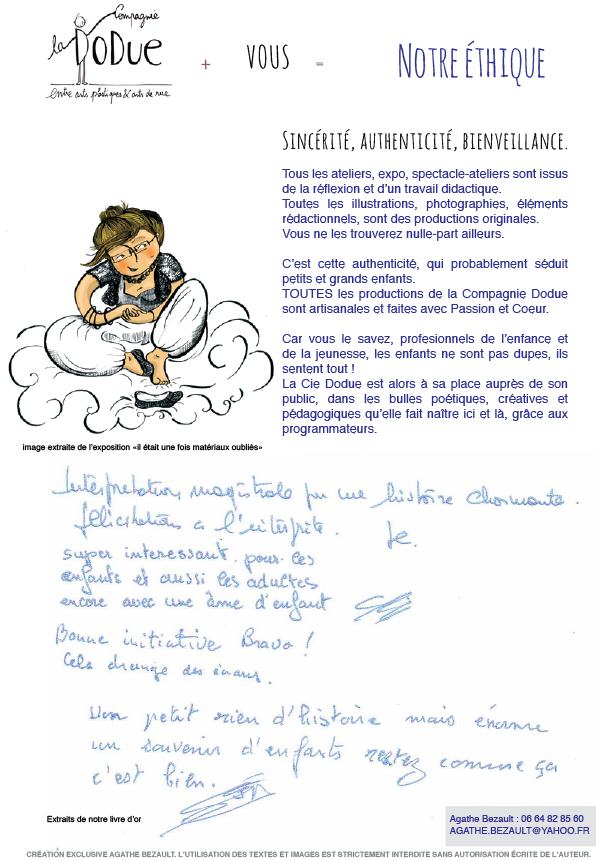 Compagnie
la DODUE
entre arts plastiques & arts de rue
+ VOUS = NOTRE ÉTHIQUE
SINCÉRITÉ, AUTHENTICITÉ, BIENVEILLANCE.
Tous les ateliers, expo, spectacle-ateliers sont issus
de la réflexion et d'un travail didactique.
Toutes les illustrations, photographies, éléments
rédactionnels, sont des productions originales.
Vous ne les trouverez nulle-part ailleurs.
C'est cette authenticité, qui probablement séduit
petits et grands enfants.
TOUTES les productions de la Compagnie Dodue
sont artisanales et faites avec Passion et Coeur.
Car vous le savez, profesionnels de l'enfance et
de la jeunesse, les enfants ne sont pas dupes, ils
sentent tout !
La Cie Dodue est alors à sa place auprès de son
public, dans les bulles poétiques, créatives et
pédagogiques qu'elle fait naître ici et là, grâce aux
programmateurs.
image extraite de l'exposition «il était une fois matériaux oubliés»
Interprétation magistrale pour une histoire charmante.
félicitations a l'interprète.
super interessant pour les
enfants et aussi les adultes
encore avec une âme d'enfant
Bonne initiative Bravo !
Cela change des écrans.
Un petit rien d'histoire mais énorme
un souvenir d'enfants restez comme ça
c'est bien.
Extraits de notre livre d'or
Agathe Bezault : 06 64 82 85 60
AGATHE.BEZAULT@YAHOO.FR
CRÉATION EXCLUSIVE AGATHE BEZAULT. L'UTILISATION DES TEXTES ET IMAGES EST STRICTEMENT INTERDITE SANS AUTORISATION ÉCRITE DE L'AUTEUR.